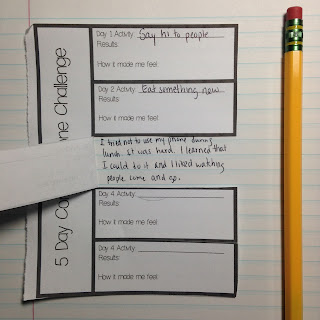 5 Day Co ne Challenge
Day 1 Activity: Say hi to people
Results:
How it made me feel:
Day 2 Activity: Eat something new
Results:
How it made me feel:
I tried not to use my phone during
lunch. It was hard. I learned that
I could to it and I liked watching
people come and go.
Day 4 Activity:
Results:
How it made me feel:
Day 4 Activity:
Results:
How it made me feel: